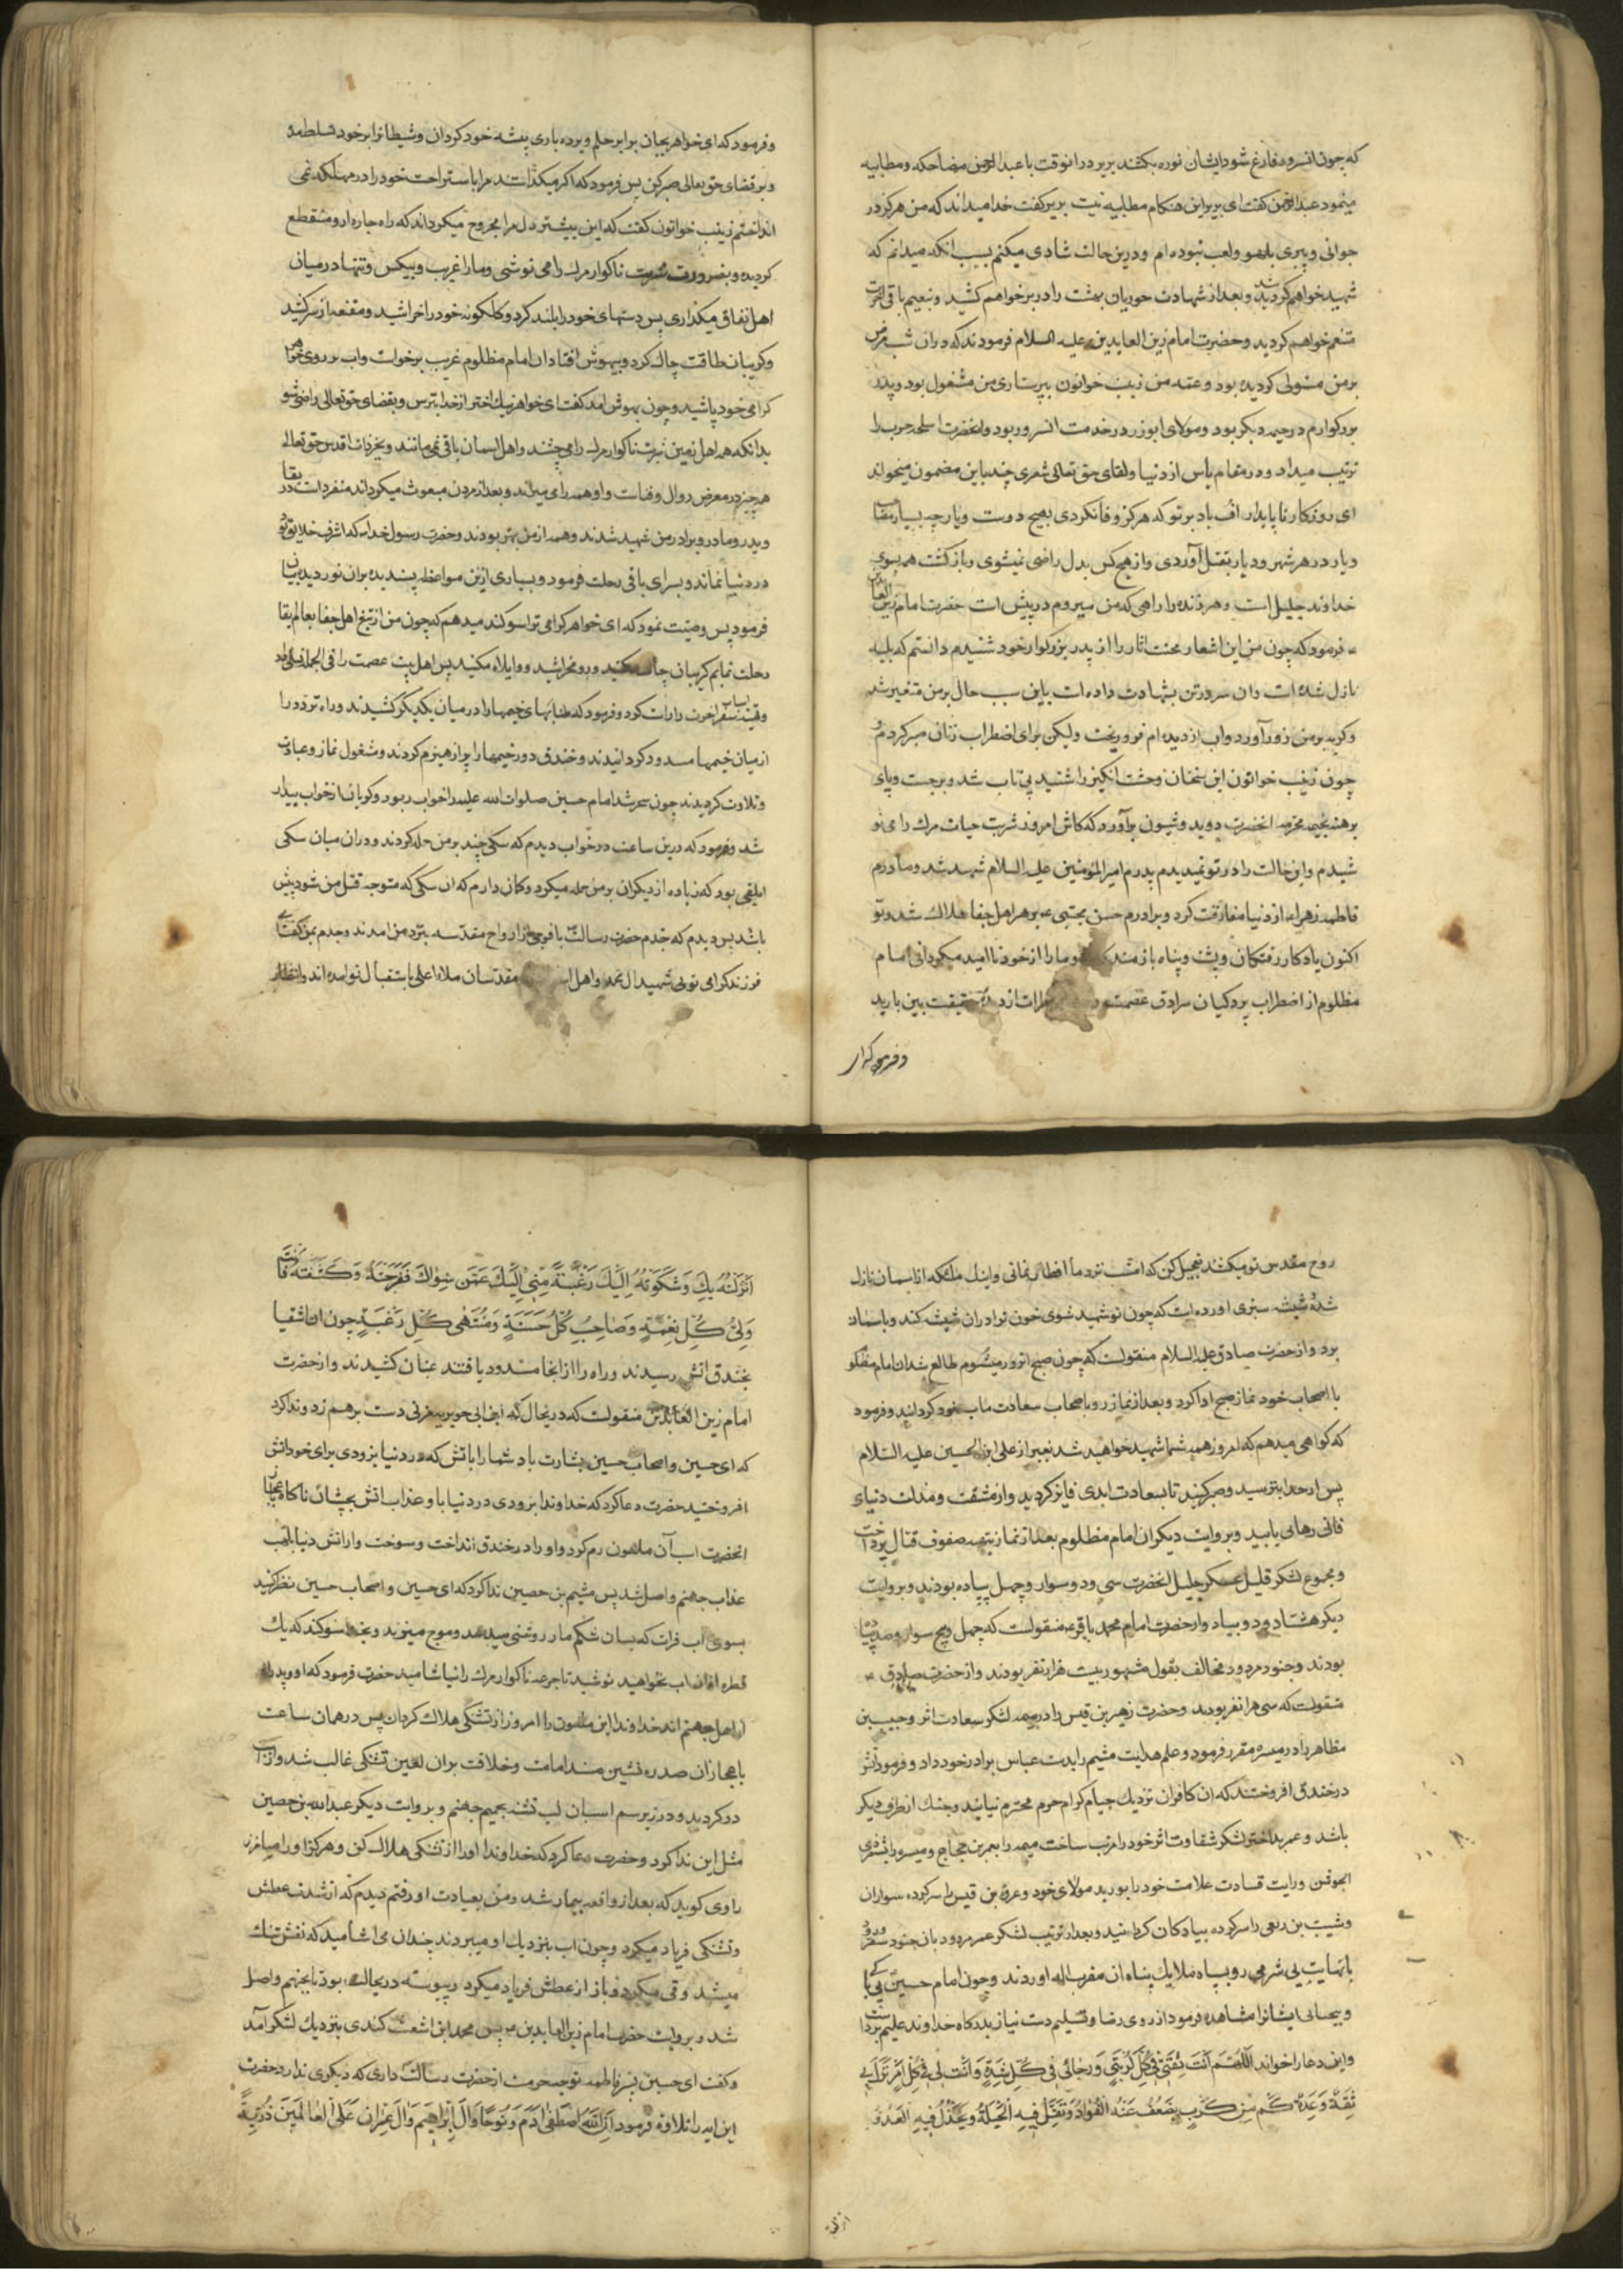 که چون انسرور فارغ شود ایشان نوره بکشند بریر در انوقت با عبدالرحمن مضاحکه و مطایبه
مینمود عبدالرحمن کفت ای بریر این هنکام مطایبه نیست بریر کفت خدا میداند که من هرکز در
جوانی و پیری بلهو و لعب نبوده ام و درین حالت شادی میکنم بسبب انکه میدانم که
شهید خواهم کردید و بعد از شهادت حوریان بهشت را در بر خواهم کشید و بنعیم باقی اخرت
متنعم خواهم کردید و حضرت امام زین العابدین علیه السلام فرمودند که در ان شب مرض
بر من مستولی کردیده بود و عمه من زینب خواتون بپرستاری من مشغول بود و پدر
بزرکوارم در خیمه دیکر بود و مولای ابوزر در خدمت انسرور بود و انحضرت اسلحه حرب را
ترتیب میداد و در مقام یاس از دنیا و لقای حق تعالی شعری چند باین مضمون میخواند
ای روزکار ناپایدار اف باد بر تو که هرکز وفا نکردی بهیچ دوست و یار چه بسیار مصاحب
و یار در هر شهر و دیار بقتل آوردی و از هیچ کس بدل راضی نمیشوی و بازکشت همه بسوی
خداوند جلیل است و هر زنده را راهی که من میروم در پیش است حضرت امام زین العابدین
ع فرمود که چون من این اشعار محنت اثار را از پدر بزرکوار خود شنیدم دانستم که بلیه
نازل شده است و ان سرور تن بشهادت داده است باین سبب حال بر من متغیر شد
و کریه بر من زور آورد و اب از دیده ام فرو ریخت ولیکن برای اضطراب زنان صبر کردم و
چون زینب خواتون این سخنان وحشت انکیز را شنید بی تاب شد و برجست و پای
برهنه بخیمه محترمه انحضرت دوید و شیون برآورد که کاش امروز شربت حیات مرک را می نو
شیدم و این حالت را در تو نمیدیدم پدرم امیرالمؤمنین علیه السلام شهید شد و مادرم
فاطمه زهراء از دنیا مفارقت کرد و برادرم حسن مجتبی ع بزهر اهل جفا هلاک شد و تو
اکنون یادکار رفتکان و پشت و پناه بازماند و ما را از خود ناامید میکردانی امام
مظلوم از اضطراب پردکیان سرادق عصمت قطرات از دیده حقیقت بین بارید
و فرمود که ای
و فرمود که ای خواهر بجان برابر حلم و بردباری پیشه خود کردان و شیطانرا بر خود تسلط مده
و بر قضای حق تعالی صبر کن پس فرمود که اکر میکذاشتند مرا باستراحت خود را در مهلکه نمی
انداختم زینب خواتون کفت که این بیشتر دل مرا مجروح میکرداند که راه چاره از تو منقطع
کردیده و بضرورت شربت ناکوار مرک را می نوشی و ما را غریب و بیکس و تنها در میان
اهل نفاق میکذاری پس دستهای خود را بلند کرد و کلکونه خود را خراشید و مقنعه از سر کشید
و کریبان طاقت چاک کرد و بیهوش افتاد ان امام مظلوم غریب برخواست و اب بر روی خواهر
کرامی خود پاشید و چون بهوش امد کفت ای خواهر نیک اختر از خدا بترس و بقضای حق تعالی راضی شو
بدانکه همه اهل زمین شربت ناکوار مرک را می چشند و اهل اسمان باقی نمی مانند و بغیر ذات اقدس حق تعالی
همه چیز در معرض زوال و فناست و او همه را می میراند و بعد از مردن مبعوث میکرداند و منفرد است در بقا
و پدر و مادر و برادر من شهید شدند و همه از من بهتر بودند و حضرت رسول خدا که اشرف خلایق بود
در دنیا نماند و بسرای باقی رحلت فرمود و بسیاری ازین مواعظ پسندیده بران نور دیده بیان
فرمود پس وصیت نمود که ای خواهر کرامی ترا سوکند میدهم که چون من از تیغ اهل جفا بعالم بقا
رحلت نمایم کریبان چاک مکنید و رو مخراشید و واویلاه مکنید پس اهل بیت عصمت را فی الجمله تسلی داد
و تهیه اسباب سفر اخرت را راست کرد و فرمود که طنابهای خیمها را در میان یکدیکر کشیدند و راه تردد را
از میان خیمها مسدود کردانیدند و خندق دور خیمها را پر از هیزم کردند و مشغول نماز و عبادت
و تلاوت کردیدند چون سحر شد امام حسین صلوات الله علیه را خواب ربود و کریان از خواب بیدار
شد و فرمود که درین ساعت در خواب دیدم که سکی چند بر من حمله کردند و در ان میان سکی
ابلقی بود که زیاده از دیکران بر من حمله میکرد و کمان دارم که ان سکی که متوجه قتل من شود پیش
باشد پس دیدم که جدم حضرت رسالت با فوجی از ارواح مقدسه بنزد من امدند و جدم بمن کفت ای
فرزند کرامی توئی شهید ال محمد و اهل اسمانها و مقدسان ملاء اعلی باستقبال تو امده اند و انتظار
روح مقدس تو میکشند تعجیل کن که امشب نزد ما افطار نمائی و اینک ملکی که از اسمان نازل
شده شیشه سبزی اورده است که چون تو شهید شوی خون تو را در ان شیشه کند و باسمان
برد و از حضرت صادق علیه السلام منقولست که چون صبح انروز میشوم طالع شد ان امام مظلوم
با اصحاب خود نماز صبح ادا کرد و بعد از نماز رو باصحاب سعادت ماب خود کردانید و فرمود
که کواهی میدهم که امروز همه شما شهید خواهید شد بغیر از علی ابن الحسین علیه السلام
پس از خدا بترسید و صبر کنید تا بسعادت ابدی فایز کردید و از مشقت و مذلت دنیای
فانی رهائی یابید و بروایت دیکر ان امام مظلوم بعد از نماز بتهیه صفوف قتال پرداخت
و مجموع لشکر قلیل عسکر جلیل انحضرت سی و دو سوار و چهل پیاده بودند و بروایت
دیکر هشتاد و دو پیاده و از حضرت امام محمد باقر ع منقولست که چهل و پنج سوار و صد پیاده
بودند و جنود مردود مخالف بقول مشهور بیست هزار نفر بودند و از حضرت صادق ع
منقولست که سی هزار نفر بودند و حضرت زهیر بن قیس را در میمنه لشکر سعادت اثر و حبیب بن
مظاهر را در میسره مقرر فرمود و علم هدایت شیم را بدست عباس برادر خود داد و فرمود آتش
در خندق افروختند که ان کافران نزدیک خیام کرام حرم محترم نیایند و جنک از طرف دیکر
باشد و عمر بداختر لشکر شقاوت اثر خود را مرتب ساخت میمنه را بعمر بن حجاج و میسره را بشمر ذی
الجوشن و رایت قسادت علامت خود را بورید مولای خود و عروة بن قیس را سرکرده سواران
و شیب بن ربعی را سرکرده پیادکان کردانید و بعد از ترتیب لشکر عمر مردود بان جنود سقر ورود
بانهایت بی شرمی رو بسپاه ملایک پناه ان مقرب اله اوردند و چون امام حسین بی باکی
و بیحیائی ایشانرا مشاهده فرمود از روی رضا و تسلیم دست نیاز بدرکاه خداوند علیم برداشت
و این دعا را خواند اَللّٰهُمَّ اَنْتَ ثِقَتی فی کُلِّ کُرْبَتی وَ رَجائی فی کُلِّ شِدَّةٍ وَ اَنْتَ لی فی کُلِّ اَمْرٍ نَزَلَ بی
ثِقَةٌ وَ عُدَّةٌ کَمْ مِنْ کَرْبٍ یَضْعُفُ عَنْهُ الْفُؤادُ وَ تَقِلُّ فیهِ الْحیلَةُ وَ یَخْذُلُ فیهِ الْعَدُوُّ
اَنْزَلْتُهُ بِکَ وَ شَکَوْتُهُ اِلَیْکَ رَغْبَةً مِنّی اِلَیْکَ عَمَّنْ سِواکَ فَفَرَّجْتَهُ وَ کَشَفْتَهُ فَاَنْتَ
وَلِیُّ کُلِّ نِعْمَةٍ وَ صاحِبُ کُلِّ حَسَنَةٍ وَ مُنْتَهٰی کُلِّ رَغْبَةٍ چون ان اشقیا
بخندق اتش رسیدند و راه را از انجا مسدود یافتند عنان کشیدند و از حضرت
امام زین العابدین منقولست که در ینحال که ابن ابی جویریه مزنی دست برهم زد و ندا کرد
که ای حسین و اصحاب حسین بشارت باد شما را باتش که در دنیا بزودی برای خود اتش
افروختید حضرت دعا کرد که خداوندا بزودی در دنیا باو عذاب اتش بچشان ناکاه باعجاز
انحضرت اسب آن ملعون رم کرد و او را در خندق انداخت و سوخت و از اتش دنیا بلهب
عذاب جهنم واصل شد پس میثم بن حصین ندا کرد که ای حسین و اصحاب حسین نظر کنید
بسوی اب فرات که بسان شکم مار روشنی میدهد و موج میزند و بخدا سوکند که یک
قطره از ان اب نخواهید نوشید تا جرعه ناکوار مرک را نیاشامید حضرت فرمود که او و پدرش
از اهل جهنم اند خداوندا این ملعون را امروز از تشنکی هلاک کردان پس در همان ساعت
باعجاز ان صدره نشین مسند امامت و خلافت بران لعین تشنکی غالب شد و از اسب
در کردید و در زیر سم اسبان لب تشنه بجحیم جهنم و بروایت دیکر عبدالله بن حصین
مثل این ندا کرد و حضرت دعا کرد که خداوندا او را از تشنکی هلاک کن و هرکز او را میامرز
راوی کوید که بعد از واقعه بیمار شد و من بعیادت او رفتم دیدم که از شدت عطش
و تشنکی فریاد میکرد و چون اب بنزدیک او میبردند چندان می اشامید که نفسش تنک
میشد و قی میکرد و باز از عطش فریاد میکرد و پیوسته در ینحالت بود تا بجهنم واصل
شد و بروایت حضرت امام زین العابدین ع پس محمد ابن اشعث کندی بنزدیک لشکر آمد
و کفت ای حسین پسر فاطمه توچه حرمت از حضرت رسالت داری که دیکری ندارد حضرت
این ایه را تلاوة فرمود اِنَّ اللهَ اصْطَفٰی اٰدَمَ وَ نُوحًا وَ اٰلَ اِبْرٰاهیمَ وَ اٰلَ عِمْرٰانَ عَلَی الْعٰالَمینَ ذُرِّیَّةً